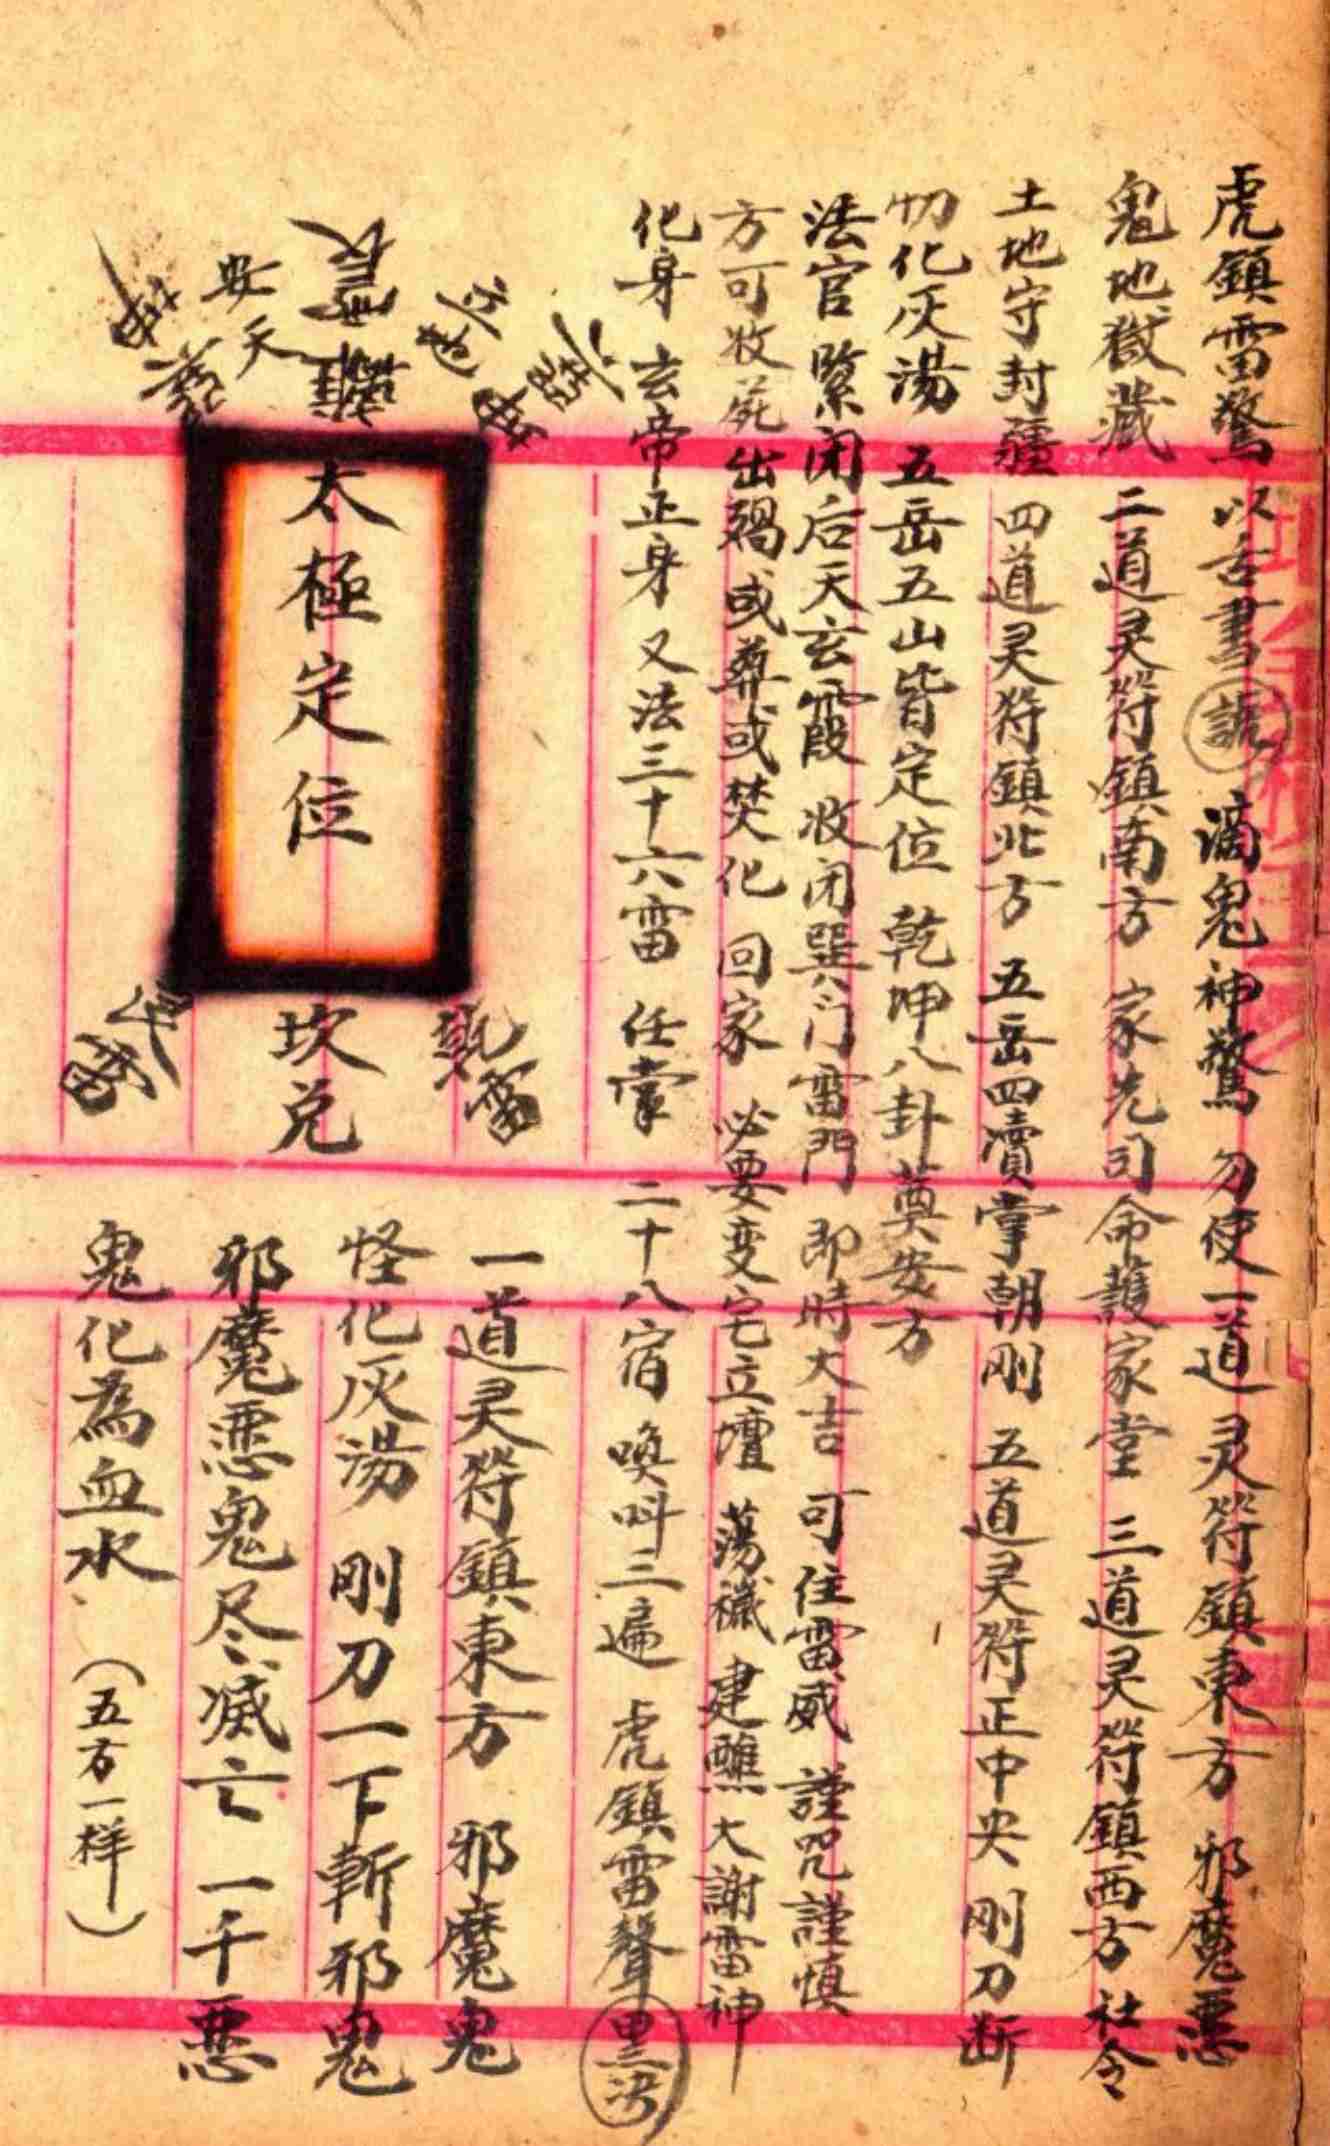 虎鎮雷驚 以舌書 滴鬼神驚 勿使一道灵符鎮東方 邪魔惡
鬼地獄藏 二道灵符鎮南方 家先司命護家堂 三道灵符鎮西方 社令
土地守封疆 四道灵符鎮北方 五岳四瀆掌朝剛 五道灵符正中央 刚刀断
切化灰湯 五岳五山皆定位 乾坤八卦奠安方
法官緊闭后天玄霞 收闭巽门雷門 即時大吉 可住雷威 謹咒謹慎
方可收 出 或葬或焚化 回家 必要变宅立壇 蕩穢 建醮 大謝雷神
化身 玄帝正身 又法三十六雷 任掌 二十八宿 喚呌三遍 虎鎮雷聲
安天
太極定位
坎兑
乾雷
一道灵符鎮東方 邪魔鬼
怪化灰湯 刚刀一下斬邪鬼
邪魔惡鬼尽滅亡 一千惡
鬼化為血水 (五方一样)